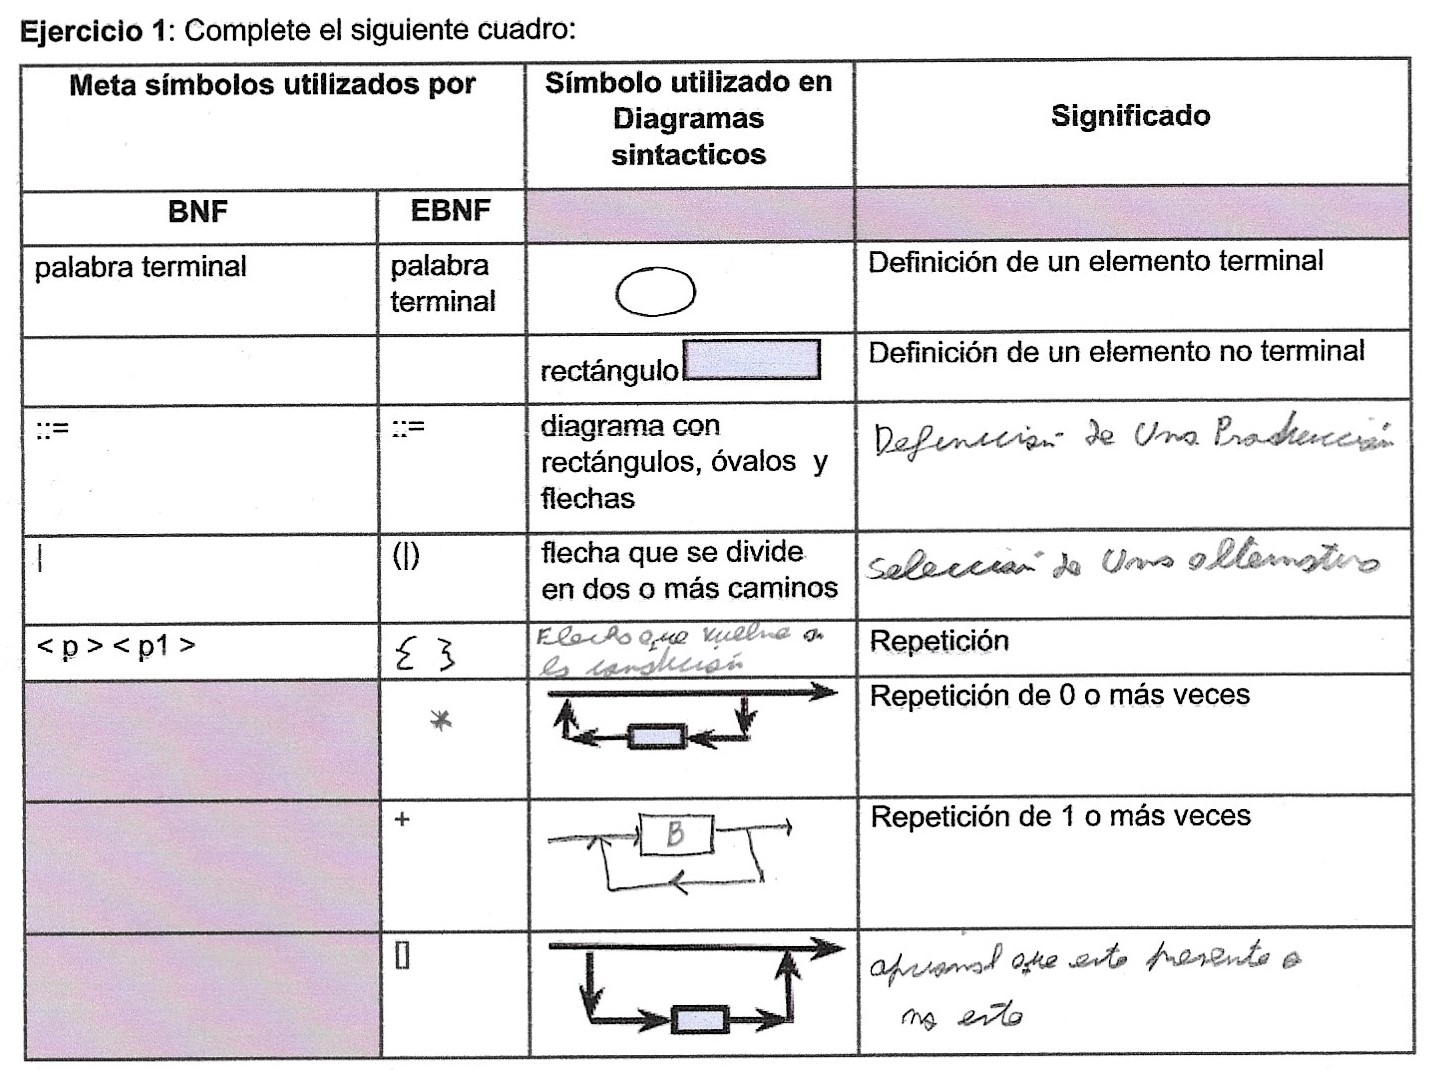 Ejercicio 1: Complete el siguiente cuadro:
Meta símbolos utilizados por
Símbolo utilizado en
Diagramas
sintacticos
Significado
BNF
EBNF
palabra terminal
palabra
terminal
Definición de un elemento terminal
rectángulo
Definición de un elemento no terminal
::=
::=
diagrama con
rectángulos, óvalos y
flechas
Definición de una Producción
|
(|)
flecha que se divide
en dos o más caminos
Selección de una alternativa
< p > < p1 >
{ }
Flecha que vuelve a
la construcción
Repetición
*
Repetición de 0 o más veces
+
B
Repetición de 1 o más veces
[]
opcional que este presente o
no este